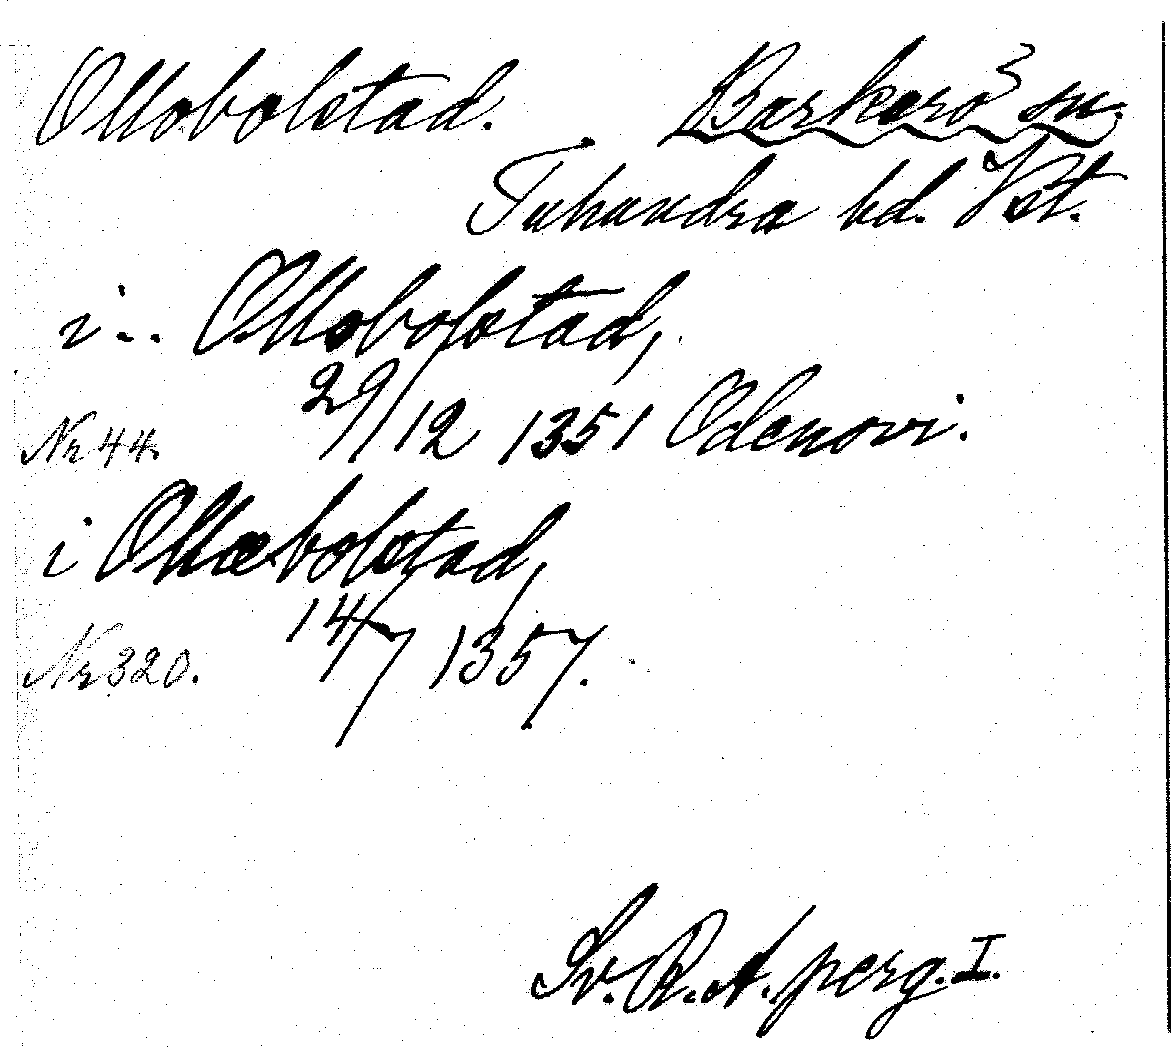 Ollobolstad. Barkarö sn.
Tuhundra hd. Vst.
i .. Ollobolstad,
Nr 44. 29/12 1351 Odensvi.
i Ollæbolstad,
Nr 320. 14/7 1357.
Sv. R. A. perg. I.